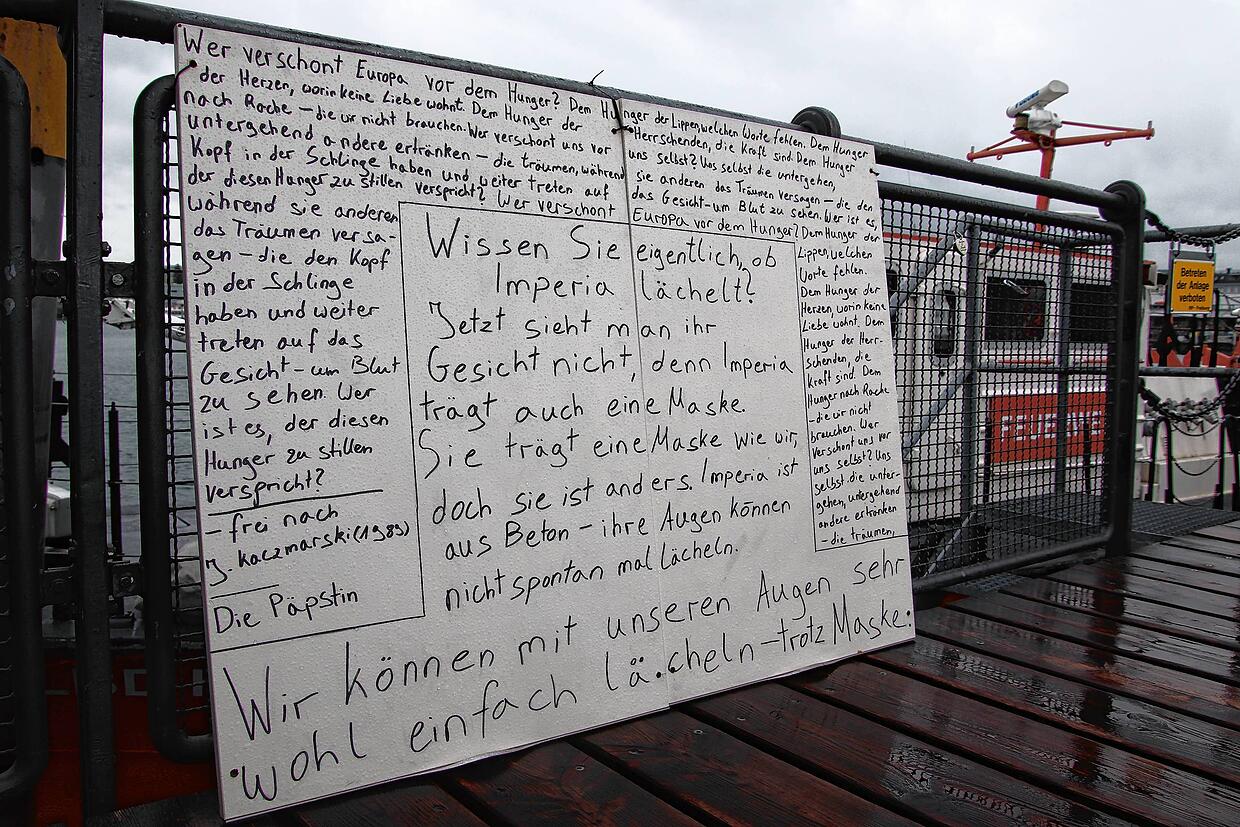 Wer verschont Europa vor dem Hunger? Dem Hunger der Lippen, welchen Worte fehlen. Dem Hunger
der Herzen, worin keine Liebe wohnt. Dem Hunger der Herrschenden, die Kraft sind. Dem Hunger
nach Rache – die wir nicht brauchen. Wer verschont uns vor uns selbst? Uns selbst die untergehen,
untergehend andere ertränken – die träumen, während sie anderen das Träumen versagen – die den
Kopf in der Schlinge haben und weiter treten auf das Gesicht – um Blut zu sehen. Wer ist es,
der diesen Hunger zu stillen verspricht? Wer verschont Europa vor dem Hunger? Dem Hunger der
während sie anderen
das Träumen versa-
gen – die den Kopf
in der Schlinge
haben und weiter
treten auf das
Gesicht – um Blut
zu sehen. Wer
ist es, der diesen
Hunger zu stillen
verspricht?
– frei nach
J. Kaczmarski (1989)
Die Päpstin
Wissen Sie eigentlich, ob
Imperia lächelt?
Jetzt sieht man ihr
Gesicht nicht, denn Imperia
trägt auch eine Maske.
Sie trägt eine Maske wie wir,
doch sie ist anders. Imperia ist
aus Beton – ihre Augen können
nicht spontan mal lächeln.
Lippen, welchen
Worte fehlen.
Dem Hunger der
Herzen, worin keine
Liebe wohnt. Dem
Hunger der Herr-
schenden, die
Kraft sind. Dem
Hunger nach Rache
– die wir nicht
brauchen. Wer
verschont uns vor
uns selbst? Uns
selbst die unter-
gehen, untergehend
andere ertränken
– die träumen,
Wir können mit unseren Augen sehr
wohl einfach lächeln – trotz Maske.
Betreten
der Anlage
verboten
FEUERWE